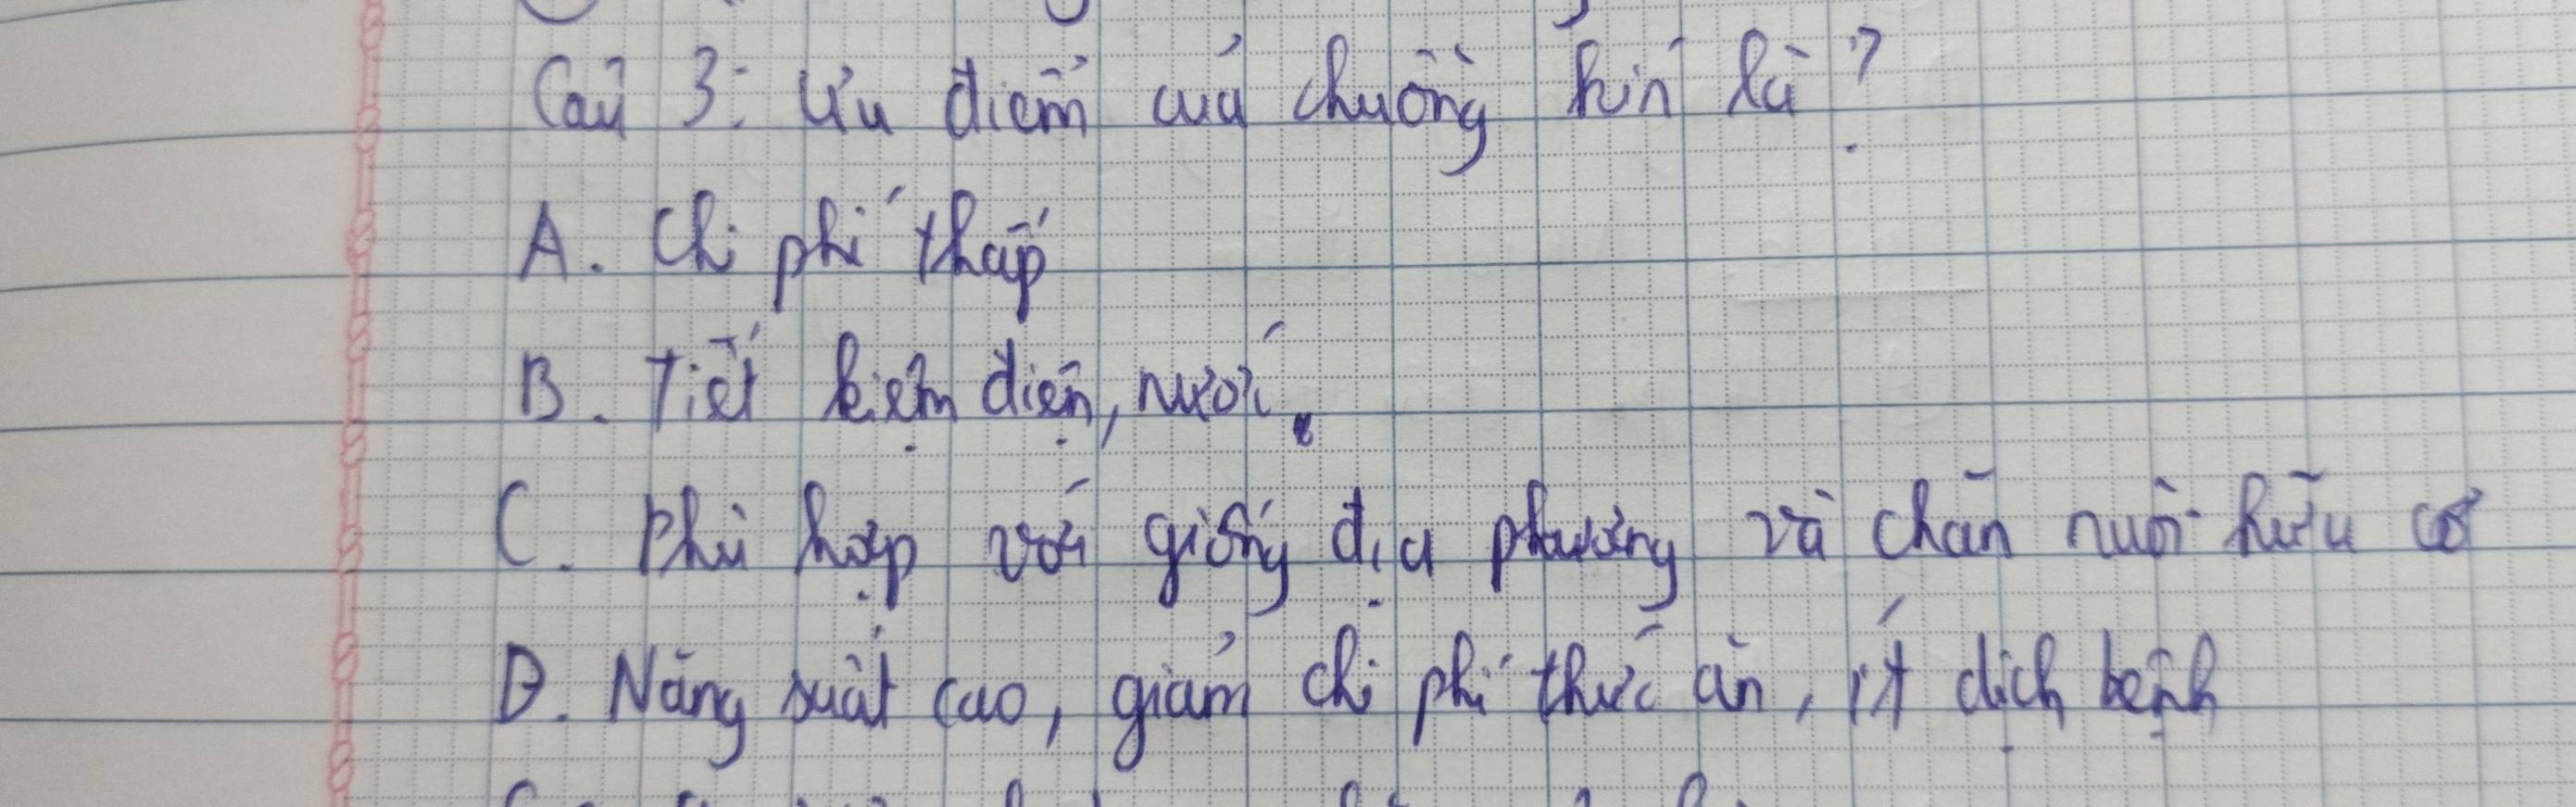 Câu 3: Ưu điểm của chuồng kín là?
A. Chi phí thấp
B. Tiết kiệm điện, nước.
C. Phù hợp với giống địa phương và chăn nuôi hữu cơ
D. Năng suất cao, giảm chi phí thức ăn, ít dịch bệnh